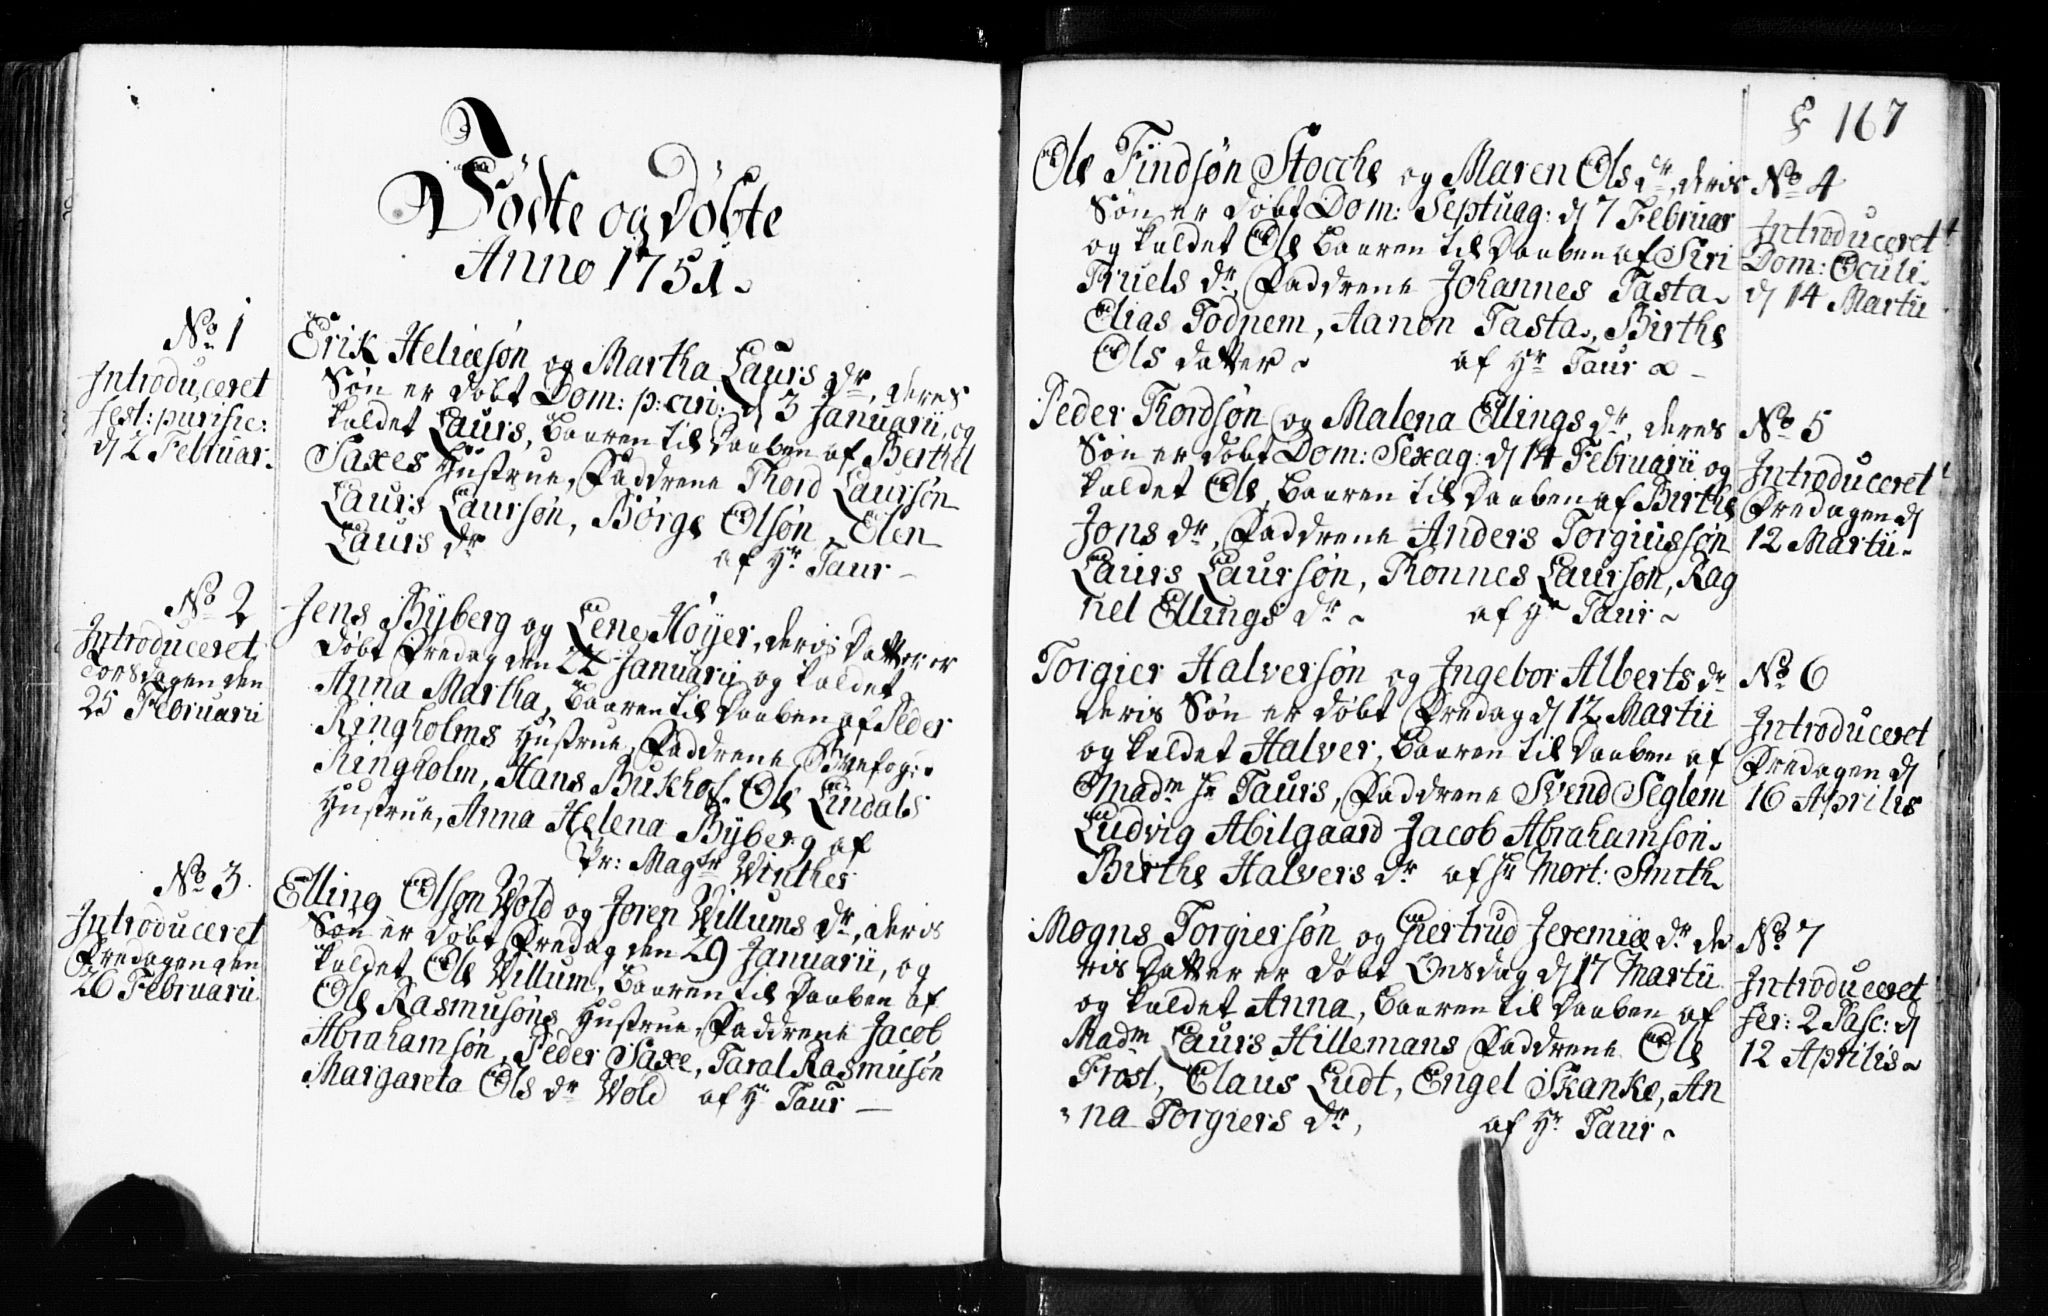 Födte og Döbte
Anno 1751.
No 1
Introduceret
fest: purific:
d 2 Februar.
Erik Heliæsøn og Martha Laurs dr, deres
Søn er døbt Dom: p: circ: d 3 Januarii, og
kaldet Laurs, baaren til Daaben af Berthel
Saxes Hustrue, Faddrene Thord Laursøn
Laurs Laursøn, Børge Olsøn, Elen
Laurs dr af Hr Taur
No 2
Introduceret
Torsdagen den
25 Februarii
Jens Byberg og Lene Høyer, deris Datter er
døbt Fredag den 22 Januarii og kaldet
Anna Martha, baaren til Daaben af Peder
Ringholms Hustrue, Faddrene
Ringholm, Hans Bukhol. Ole Lindals
Hustrue, Anna Helena Byberg af
Pr: Magtr Winther
No 3.
Introduceret
Fredagen den
26 Februarii
Elling Olsøn Wold og Joren Willums dr, deris
Søn er døbt Fredag den 29 Januarii, og
kaldet Ole Willum, baaren til Daaben af
Ole Rasmusøns Hustrue, Faddrene Jacob
Abrahamsøn, Peder Saxe, Taral Rasmusøn
Margareta Ols dr Wold af Hr Taur
167
Ole Findsøn Stocche og Maren Ols dr, deris
Søn er døbt Dom: Septuag: d 7 Februar
og kaldet Ole baaren til Daaben af Siri
Truels dr, Faddrene Johannes Tasta
Elias Todnem, Aanon Tasta, Birthe
Ols datter af Hr Taur
No 4
Introduceret
Dom: Oculi
d 14 Martii
Peder Thordsøn og Malena Ellings dr, deres
Søn er døbt Dom: Sexag: d 14 Februarii og
kaldet Ole, baaren til Daaben af Birthe
Jons dr, Faddrene Anders Torgiussøn
Laurs Laursøn, Thonnes Laursøn, Rag
nel Ellings dr af Hr Taur
No 5
Introduceret
Fredagen d
12 Martii
Torgier Halversøn og Ingebor Alberts dr
deris Søn er døbt Fredag d 12 Martii
og kaldet Halver, baaren til Daaben af
Madm Hr Taurs, Faddrene Svend Seglem
Ludvig Abilgaard Jacob Abrahamsøn
Birthe Halvers dr af Hr Mort: Smith
No 6
Introduceret
Fredagen d
16 Aprilis
Mogns Torgiersøn og Giertrud Jeremiæ dr de
ris Datter er døbt Onsdag d 17 Martii
og kaldet Anna, baaren til Daaben af
Madm Laurs Hillemans Faddrene Ole
Frost, Claus Ludt, Engel Skanke, An
na Torgiers dr, af Hr Taur
No 7
Introduceret
fer: 2 Pasc: d
12 Aprilis